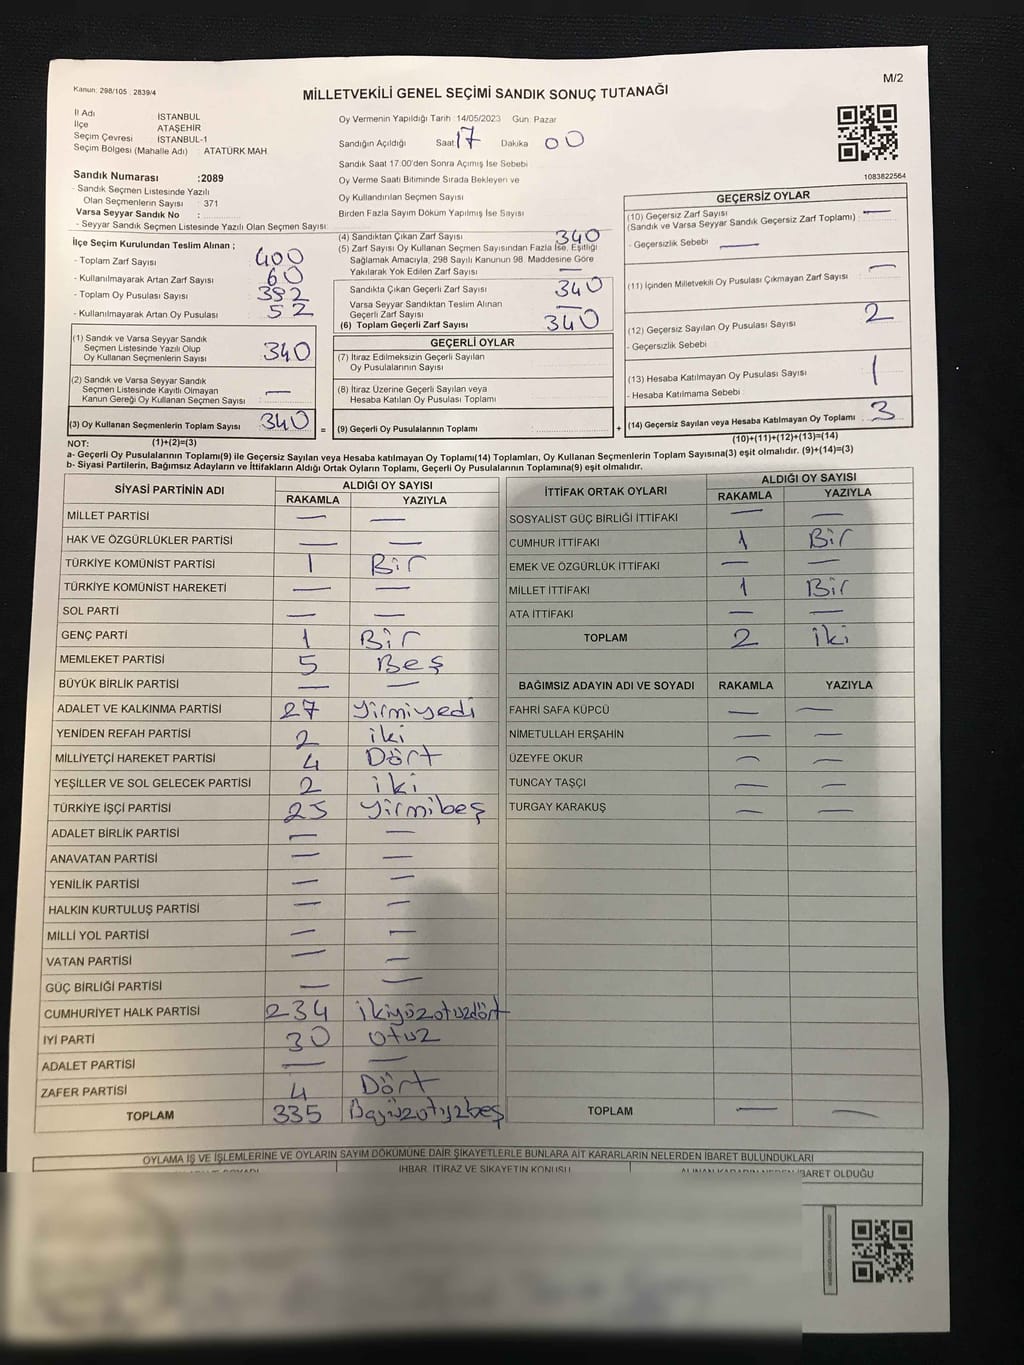 Kanun: 298/105 : 2839/4
MİLLETVEKİLİ GENEL SEÇİMİ SANDIK SONUÇ TUTANAĞI
M/2
İl Adı İSTANBUL
İlçe ATAŞEHİR
Seçim Çevresi İSTANBUL-1
Seçim Bölgesi (Mahalle Adı) ATATÜRK MAH.
Sandık Numarası :2089
- Sandık Seçmen Listesinde Yazılı
Olan Seçmenlerin Sayısı : 371
Varsa Seyyar Sandık No :
- Seyyar Sandık Seçmen Listesinde Yazılı Olan Seçmen Sayısı
İlçe Seçim Kurulundan Teslim Alınan ;
- Toplam Zarf Sayısı 400
- Kullanılmayarak Artan Zarf Sayısı 60
- Toplam Oy Pusulası Sayısı 392
- Kullanılmayarak Artan Oy Pusulası 52
(1) Sandık ve Varsa Seyyar Sandık
Seçmen Listesinde Yazılı Olup
Oy Kullanan Seçmenlerin Sayısı 340
(2) Sandık ve Varsa Seyyar Sandık
Seçmen Listesinde Kayıtlı Olmayan
Kanun Gereği Oy Kullanan Seçmen Sayısı —
(3) Oy Kullanan Seçmenlerin Toplam Sayısı 340
Oy Vermenin Yapıldığı Tarih :14/05/2023 Gün: Pazar
Sandığın Açıldığı Saat 17 Dakika 00
Sandık Saat 17.00'den Sonra Açımış İse Sebebi
Oy Verme Saati Bitiminde Sırada Bekleyen ve
Oy Kullandırılan Seçmen Sayısı
Birden Fazla Sayım Döküm Yapılmış İse Sayısı
(4) Sandıktan Çıkan Zarf Sayısı 340
(5) Zarf Sayısı Oy Kullanan Seçmen Sayısından Fazla İse, Eşitliği
Sağlamak Amacıyla, 298 Sayılı Kanunun 98. Maddesine Göre
Yakılarak Yok Edilen Zarf Sayısı —
Sandıkta Çıkan Geçerli Zarf Sayısı 340
Varsa Seyyar Sandıktan Teslim Alınan
Geçerli Zarf Sayısı —
(6) Toplam Geçerli Zarf Sayısı 340
GEÇERLİ OYLAR
(7) İtiraz Edilmeksizin Geçerli Sayılan
Oy Pusulalarının Sayısı
(8) İtiraz Üzerine Geçerli Sayılan veya
Hesaba Katılan Oy Pusulası Toplamı
= (9) Geçerli Oy Pusulalarının Toplamı +
1083822564
GEÇERSİZ OYLAR
(10) Geçersiz Zarf Sayısı
(Sandık ve Varsa Seyyar Sandık Geçersiz Zarf Toplamı) : —
- Geçersizlik Sebebi —
(11) İçinden Milletvekili Oy Pusulası Çıkmayan Zarf Sayısı —
(12) Geçersiz Sayılan Oy Pusulası Sayısı 2
- Geçersizlik Sebebi
(13) Hesaba Katılmayan Oy Pusulası Sayısı 1
- Hesaba Katılmama Sebebi
(14) Geçersiz Sayılan veya Hesaba Katılmayan Oy Toplamı 3
NOT: (1)+(2)=(3)
(10)+(11)+(12)+(13)=(14)
a- Geçerli Oy Pusulalarının Toplamı(9) ile Geçersiz Sayılan veya Hesaba katılmayan Oy Toplamı(14) Toplamları, Oy Kullanan Seçmenlerin Toplam Sayısına(3) eşit olmalıdır. (9)+(14)=(3)
b- Siyasi Partilerin, Bağımsız Adayların ve İttifakların Aldığı Ortak Oyların Toplamı, Geçerli Oy Pusulalarının Toplamına(9) eşit olmalıdır.
SİYASİ PARTİNİN ADI
ALDIĞI OY SAYISI
RAKAMLA YAZIYLA
MİLLET PARTİSİ — —
HAK VE ÖZGÜRLÜKLER PARTİSİ — —
TÜRKİYE KOMÜNİST PARTİSİ 1 Bir
TÜRKİYE KOMÜNİST HAREKETİ — —
SOL PARTİ — —
GENÇ PARTİ 1 Bir
MEMLEKET PARTİSİ 5 Beş
BÜYÜK BİRLİK PARTİSİ — —
ADALET VE KALKINMA PARTİSİ 27 Yirmiyedi
YENİDEN REFAH PARTİSİ 2 iki
MİLLİYETÇİ HAREKET PARTİSİ 4 Dört
YEŞİLLER VE SOL GELECEK PARTİSİ 2 iki
TÜRKİYE İŞÇİ PARTİSİ 25 Yirmibeş
ADALET BİRLİK PARTİSİ — —
ANAVATAN PARTİSİ — —
YENİLİK PARTİSİ — —
HALKIN KURTULUŞ PARTİSİ — —
MİLLİ YOL PARTİSİ — —
VATAN PARTİSİ — —
GÜÇ BİRLİĞİ PARTİSİ — —
CUMHURİYET HALK PARTİSİ 234 ikiyüzotuzdört
İYİ PARTİ 30 otuz
ADALET PARTİSİ — —
ZAFER PARTİSİ 4 Dört
TOPLAM 335
İTTİFAK ORTAK OYLARI
ALDIĞI OY SAYISI
RAKAMLA YAZIYLA
SOSYALİST GÜÇ BİRLİĞİ İTTİFAKI — —
CUMHUR İTTİFAKI 1 Bir
EMEK VE ÖZGÜRLÜK İTTİFAKI — —
MİLLET İTTİFAKI 1 Bir
ATA İTTİFAKI — —
TOPLAM 2 iki
BAĞIMSIZ ADAYIN ADI VE SOYADI RAKAMLA YAZIYLA
FAHRİ SAFA KÜPCÜ — —
NİMETULLAH ERŞAHİN — —
ÜZEYFE OKUR — —
TUNCAY TAŞÇI — —
TURGAY KARAKUŞ — —
TOPLAM — —
OYLAMA İŞ VE İŞLEMLERİNE VE OYLARIN SAYIM DÖKÜMÜNE DAİR ŞİKAYETLERLE BUNLARA AİT KARARLARIN NELERDEN İBARET BULUNDUKLARI
İHBAR, İTİRAZ VE ŞİKAYETİN KONUSU
İBARET OLDUĞU